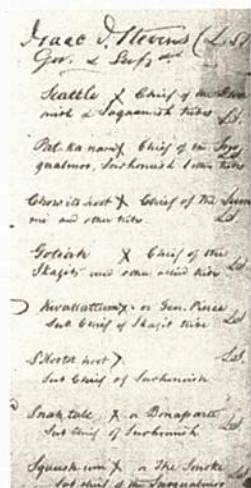 Isaac I. Stevens (L.S.)
Gov. & Supt
Seattle X Chief of the
mish & Suquamish tribes
Pat-ka-nam X Chief of the Sno
qualmoo, Snohomish & other tribes
Chow its hoot X Chief of the Lum
mi and other tribes L.S.
Goliah X Chief of the
Skagits and other allied tribes L.S.
Kwallattum X or Gen. Pierce
Sub Chief of Skagit tribe L.S.
S'Hootst hoot X L.S.
Sub Chief of Snohomish
Snah talc X or Bonaparte L.S.
Sub Chief of Snohomish
Squush um X or The Smoke
Sub chief of the Snoqualmoo